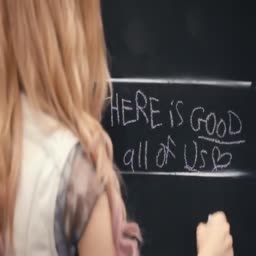 HERE is GOOD
all of Us♡